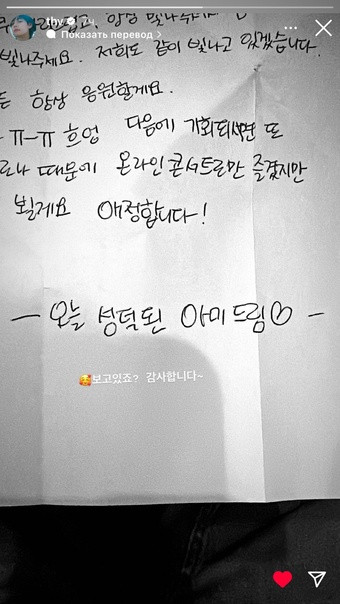 thv
Показать перевод >
항상 빛나주
빛나주세요. 저희도 같이 빛나고 있겠습니다.
항상 응원할게요.
ㅠ-ㅠ 흐엉 다음에 기회되시면 또
로나 때문에 온라인콘서트로만 즐겼지만
뵐게요 애정합니다!
— 오늘 성덕된 아미드림♡ —
🥰보고있죠? 감사합니다~